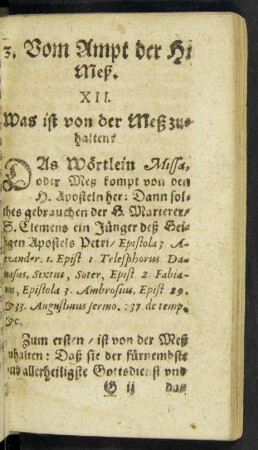 3. Vom Ampt der Hi
Meß.
XII.
Was ist von der Meß zu-
halten?
DAs Wörtlein Missa,
oder Meß kompt von den
H. Aposteln her: Dann sol-
ches gebrauchen der H. Marterer
S. Clemens ein Jünger deß Hei-
ligen Apostels Petri / Epistola 3 A-
lexander. 1. Epist 1 Telesphorus Da-
masus, Sextus, Soter, Epist 2 Fabia-
nus, Epistola 3. Ambrosius, Epist 29.
& 33. Augustinus sermo. 237 de temp.
&c.
Zum ersten / ist von der Meß
zuhalten: Daß sie der fürnembste
und allerheiligste Gottsdienst und
G ij das